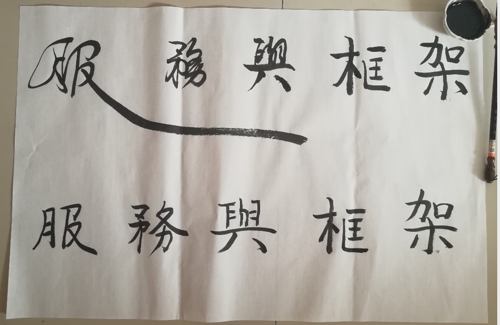 服務與框架
服務與框架